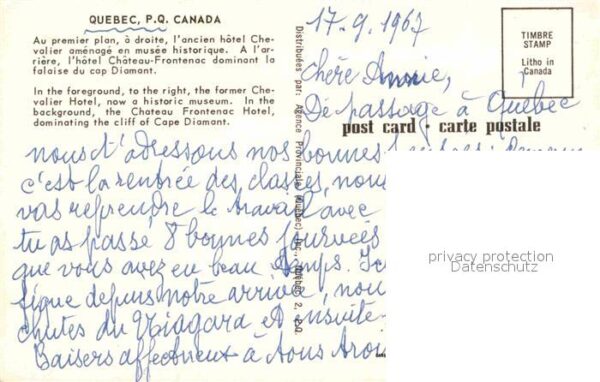 QUEBEC, P.Q. CANADA
Au premier plan, à droite, l'ancien hôtel Che-
valier aménagé en musée historique. A l'ar-
rière, l'hôtel Château-Frontenac dominant la
falaise du cap Diamant.
In the foreground, to the right, the former Che-
valier Hotel, now a historic museum. In the
background, the Chateau Frontenac Hotel,
dominating the cliff of Cape Diamant.
Distribuées par: Agence Provinciale (Québec) Inc., Québec 2, P.Q.
TIMBRE
STAMP
Litho in
Canada
post card - carte postale
17.9.1967
Chère Annie,
De passage à Québec
nous t'adressons nos bonnes
c'est la rentrée des classes, nous
vas reprendre le travail avec
tu as passé 8 bonnes journées
que vous avez eu beau temps.
fique depuis notre arrivée, nou
chutes du Niagara et ensuite
Baisers affectueux à tous
privacy protection
Datenschutz